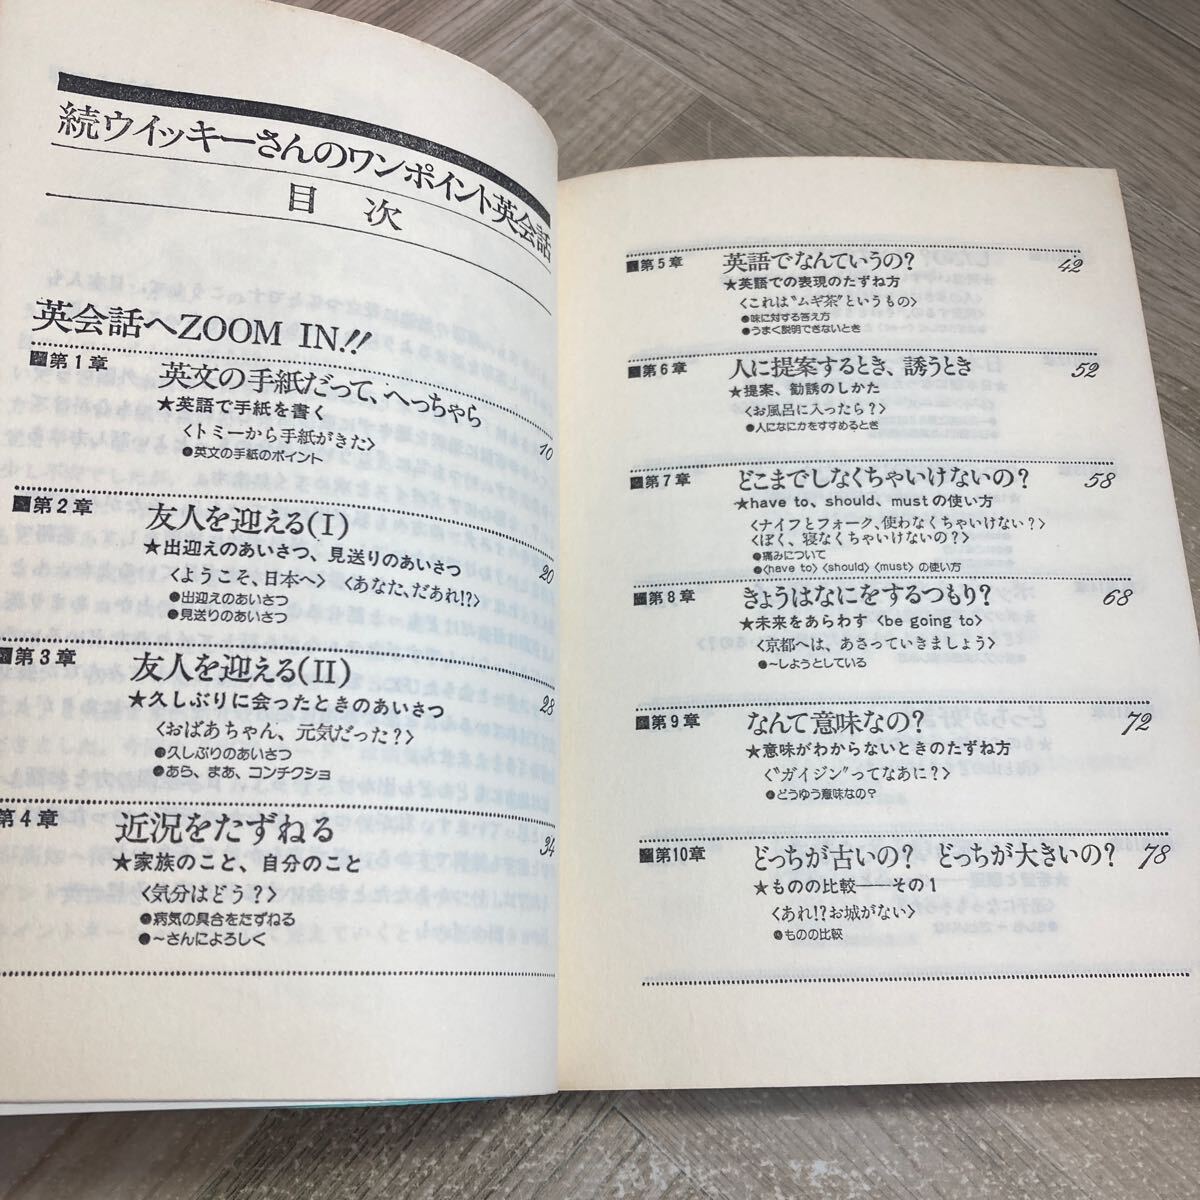 続ウイッキーさんのワンポイント英会話
目 次
英会話へZOOM IN!!
第1章 英文の手紙だって、へっちゃら 10
★英語で手紙を書く
〈トミーから手紙がきた〉
●英文の手紙のポイント
第2章 友人を迎える(I) 20
★出迎えのあいさつ、見送りのあいさつ
〈ようこそ、日本へ〉〈あなた、だあれ!?〉
●出迎えのあいさつ
●見送りのあいさつ
第3章 友人を迎える(II) 28
★久しぶりに会ったときのあいさつ
〈おばあちゃん、元気だった?〉
●久しぶりのあいさつ
●あら、まあ、コンチクショ
第4章 近況をたずねる 34
★家族のこと、自分のこと
〈気分はどう?〉
●病気の具合をたずねる
●〜さんによろしく
第5章 英語でなんていうの? 42
★英語での表現のたずね方
〈これは“ムギ茶”というもの〉
●味に対する答え方
●うまく説明できないとき
第6章 人に提案するとき、誘うとき 52
★提案、勧誘のしかた
〈お風呂に入ったら?〉
●人になにかをすすめるとき
第7章 どこまでしなくちゃいけないの? 58
★have to、should、must の使い方
〈ナイフとフォーク、使わなくちゃいけない?〉
〈ぼく、寝なくちゃいけないの?〉
●痛みについて
●〈have to〉〈should〉〈must〉の使い方
第8章 きょうはなにをするつもり? 68
★未来をあらわす〈be going to〉
〈京都へは、あさっていきましょう〉
●〜しようとしている
第9章 なんて意味なの? 72
★意味がわからないときのたずね方
〈“ガイジン”ってなあに?〉
●どうゆう意味なの?
第10章 どっちが古いの? どっちが大きいの? 78
★ものの比較——その1
〈あれ!?お城がない〉
●ものの比較